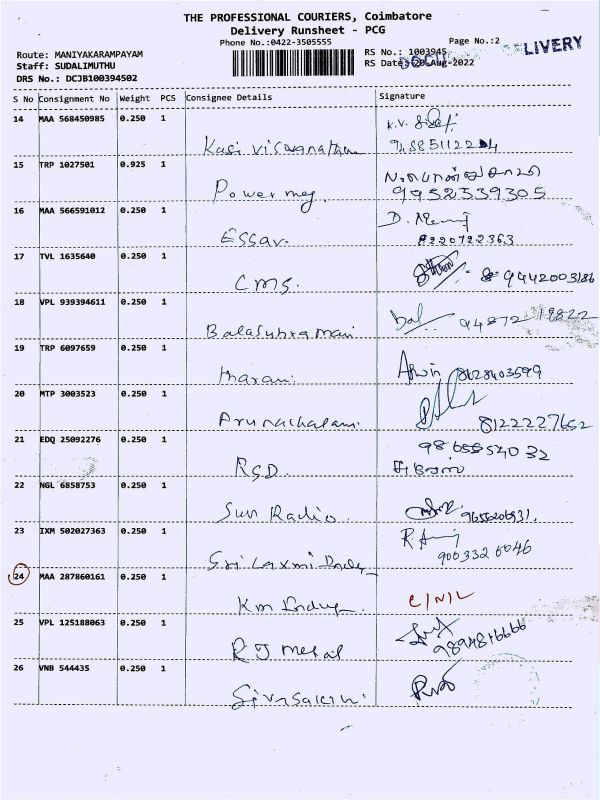 THE PROFESSIONAL COURIERS, Coimbatore
Delivery Runsheet - PCG
Phone No.:0422-3505555
Page No.:2
DELIVERY
Route: MANIYAKARAMPAYAM
RS No.: 1003945
Staff: SUDALIMUTHU
RS Date: 20-Aug-2022
DRS No.: DCJB100394502
S No Consignment No Weight PCS Consignee Details Signature
14 MAA 568450985 0.250 1
Kasi Viswanathan
15 TRP 1027501 0.925 1
Power meg. 9952339305
16 MAA 566591012 0.250 1
D.
Essar. 8220722363
17 TVL 1635640 0.250 1
CMS. 9442003186
18 VPL 939394611 0.250 1
Balasubramani Bal 94872 19822
19 TRP 6097659 0.250 1
Tharani 8128403599
20 MTP 3003523 0.250 1
Arunachalam. 8122227652
21 EDQ 25092276 0.250 1
RSD.
22 NGL 6858753 0.250 1
Sun Radio 9655206931.
23 IXM 502027363 0.250 1
Sri Laxmi 9003326046
24 MAA 287860161 0.250 1
Km C/N/L
25 VPL 125188063 0.250 1
RJ metal 9894816666
26 VNB 544435 0.250 1
Sivasakthi